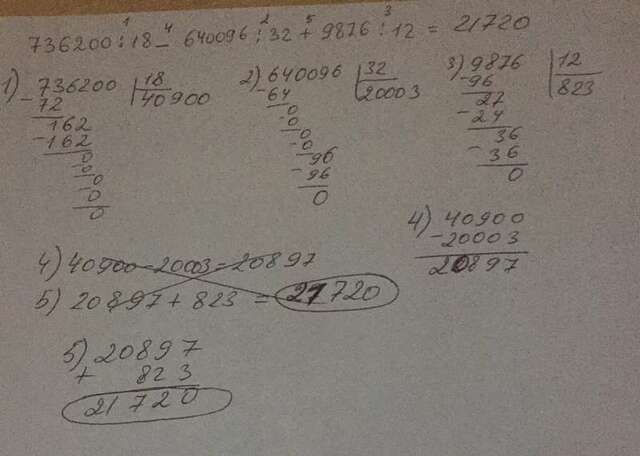 1 4 2 5 3
736200:18 - 640096:32 + 9876:12 = 21720
1) 736200 | 18
- 72 40900
162
- 162
0
- 0
0
- 0
0
2) 640096 | 32
- 64 20003
0
- 0
0
- 0
96
- 96
0
3) 9876 | 12
- 96 823
27
- 24
36
- 36
0
4) 40900
- 20003
20897
4) 40900 - 20003 = 20897
5) 20897 + 823 = 21720
5) 20897
+ 823
21720